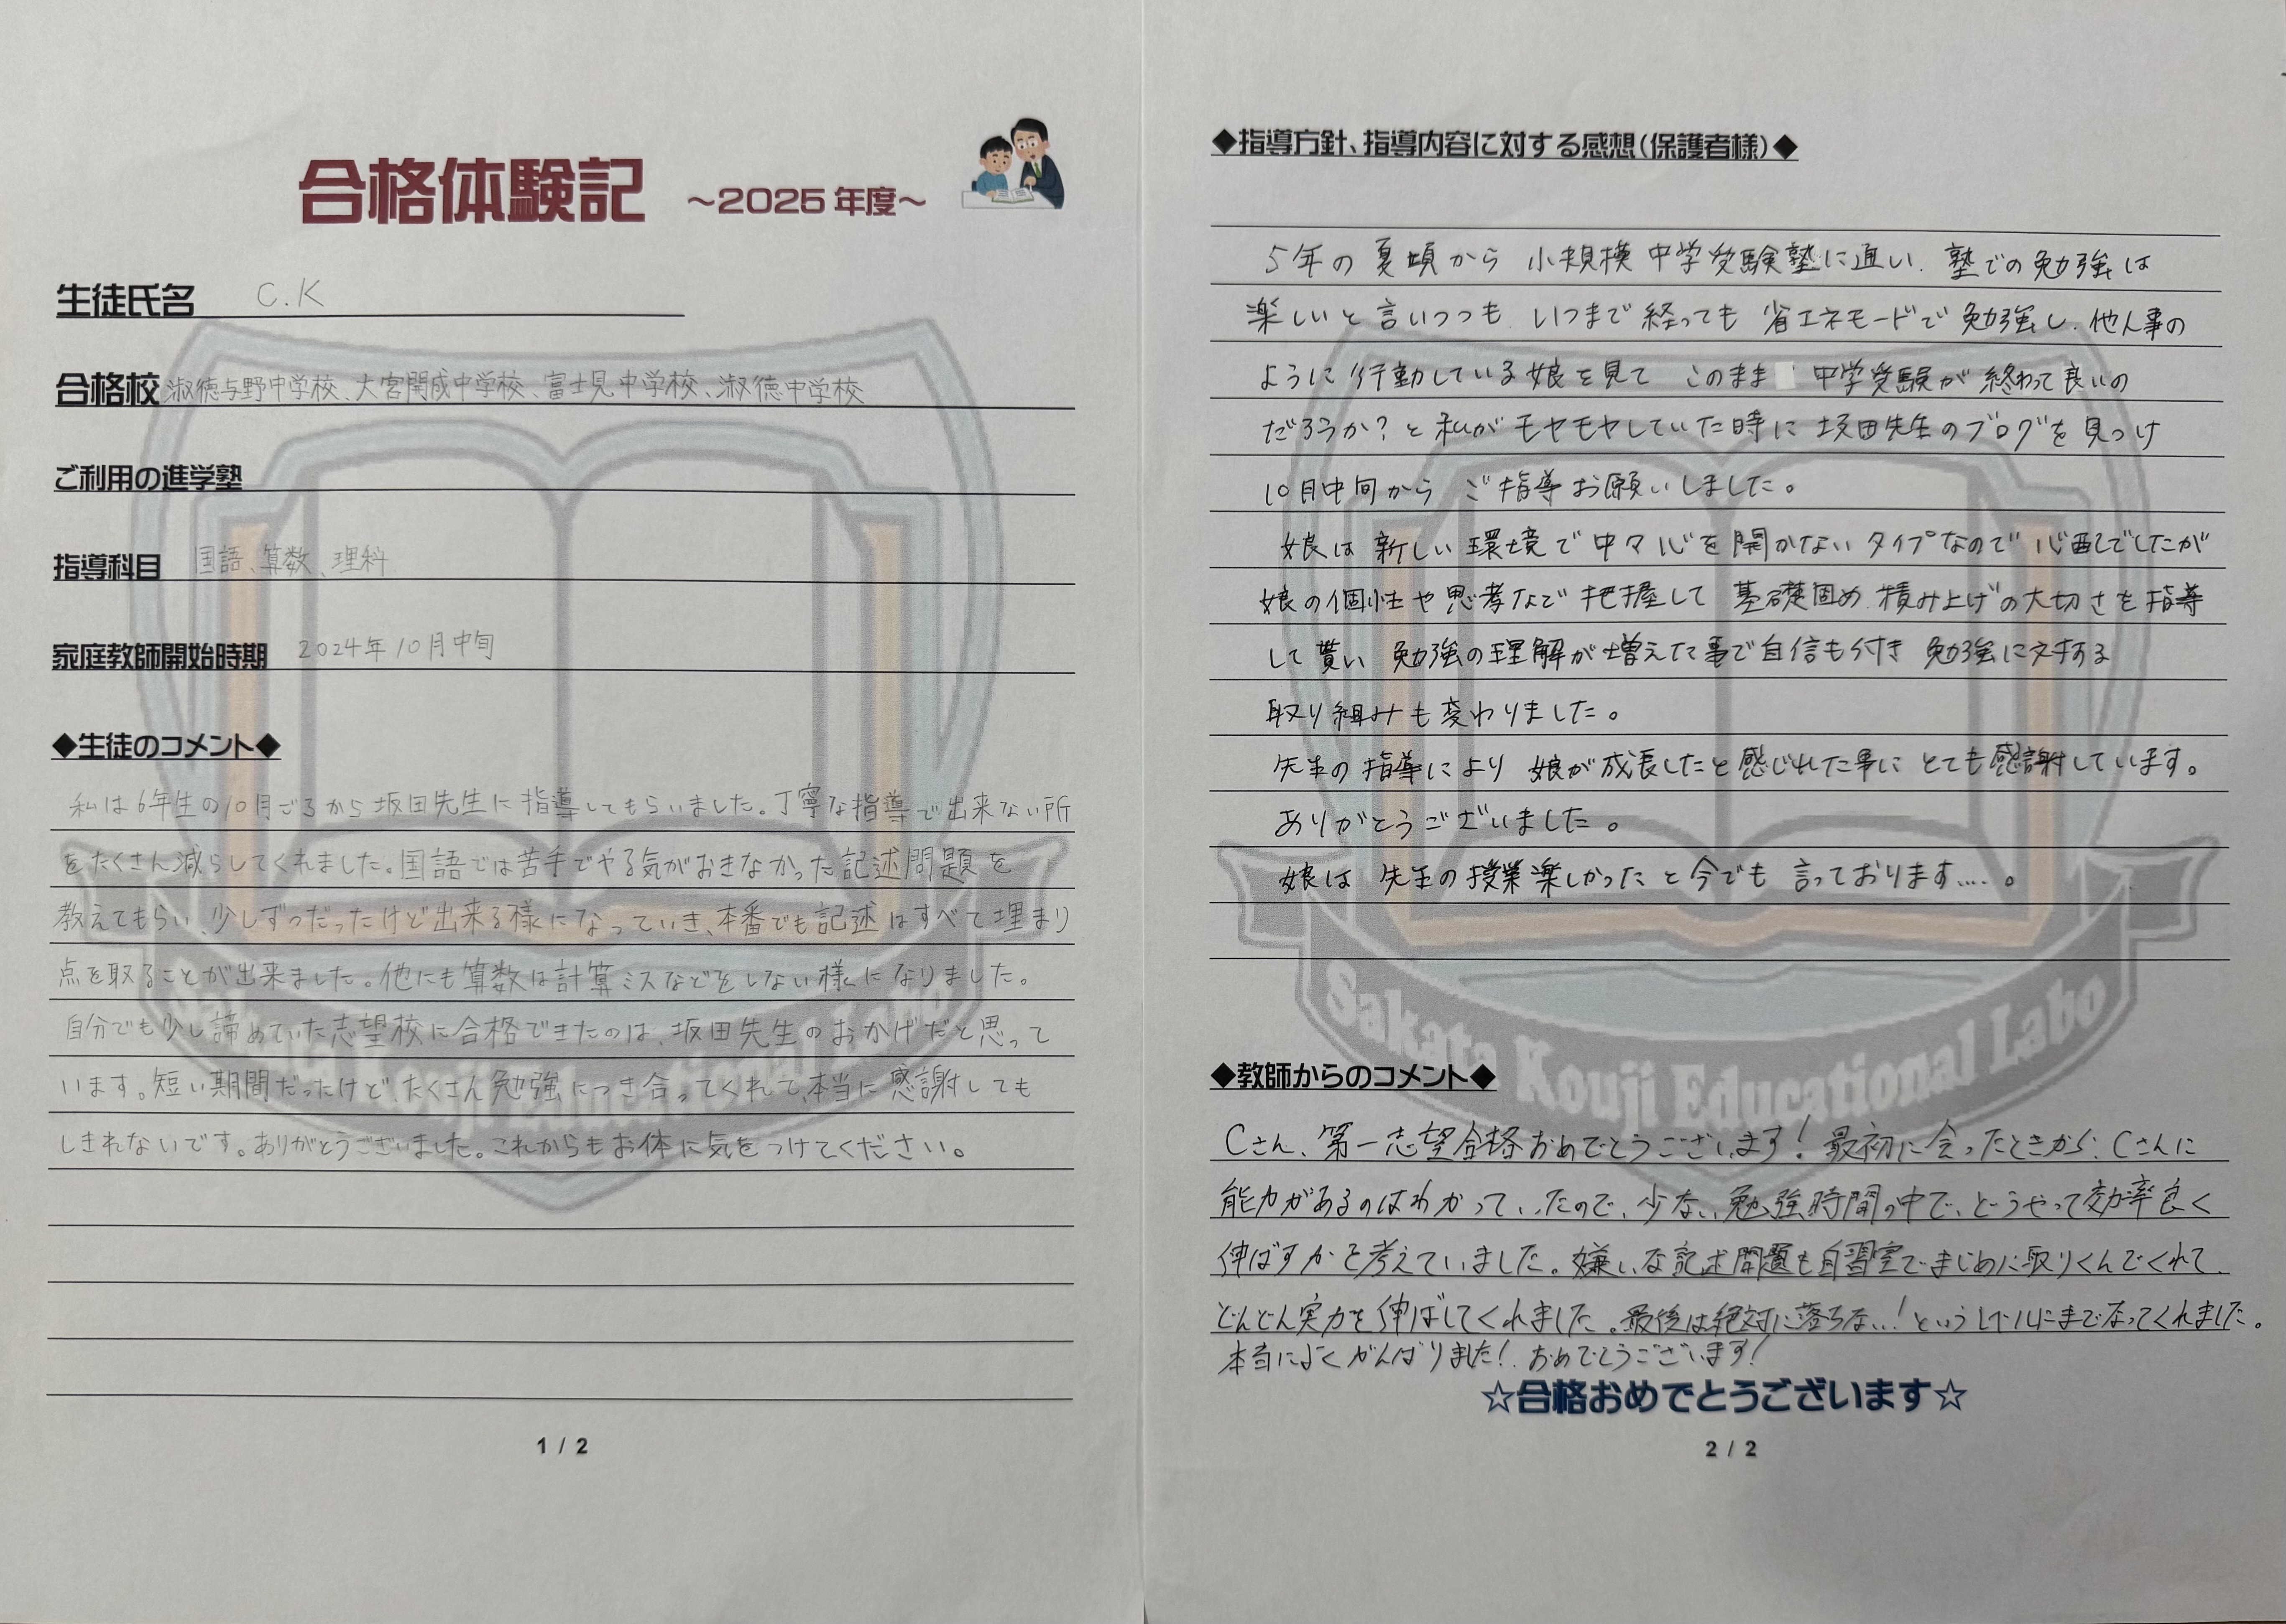 合格体験記 ～2025年度～
生徒氏名 C.K
合格校 淑徳与野中学校、大宮開成中学校、富士見中学校、淑徳中学校
ご利用の進学塾
指導科目 国語、算数、理科
家庭教師開始時期 2024年10月中旬
◆生徒のコメント◆
私は6年生の10月ごろから坂田先生に指導してもらいました。丁寧な指導で出来ない所
をたくさん減らしてくれました。国語では苦手でやる気がおきなかった記述問題を
教えてもらい、少しずつだったけど出来る様になっていき、本番でも記述はすべて埋まり
点を取ることが出来ました。他にも算数は計算ミスなどをしない様になりました。
自分でも少し諦めていた志望校に合格できたのは、坂田先生のおかげだと思って
います。短い期間だったけど、たくさん勉強につき合ってくれて、本当に感謝しても
しきれないです。ありがとうございました。これからもお体に気をつけてください。
1 / 2
◆指導方針、指導内容に対する感想(保護者様)◆
5年の夏頃から 小規模中学受験塾に通い、塾での勉強は
楽しいと言いつつも いつまで経っても 省エネモードで勉強し、他人事の
ように行動している娘を見て このまま 中学受験が終わって良いの
だろうか?と私がモヤモヤしていた時に坂田先生のブログを見つけ
10月中旬から ご指導お願いしました。
娘は新しい環境で中々心を開かないタイプなので心配でしたが
娘の個性や思考など把握して 基礎固め、積み上げの大切さを指導
して貰い 勉強の理解が増えた事で自信も付き 勉強に対する
取り組みも変わりました。
先生の指導により 娘が成長したと感じれた事に とても感謝しています。
ありがとうございました。
娘は 先生の授業楽しかったと今でも 言っております....。
Sakata Kouji Educational Labo
◆教師からのコメント◆
Cさん、第一志望合格おめでとうございます!最初に会ったときから、Cさんに
能力があるのはわかっていたので、少ない勉強時間の中で、どうやって効率良く
伸ばすかを考えていました。嫌いな記述問題も自習室でまじめに取りくんでくれて、
どんどん実力を伸ばしてくれました。最後は絶対に落ちない!というレベルにまでなってくれました。
本当によくがんばりました!おめでとうございます!
☆合格おめでとうございます☆
2 / 2